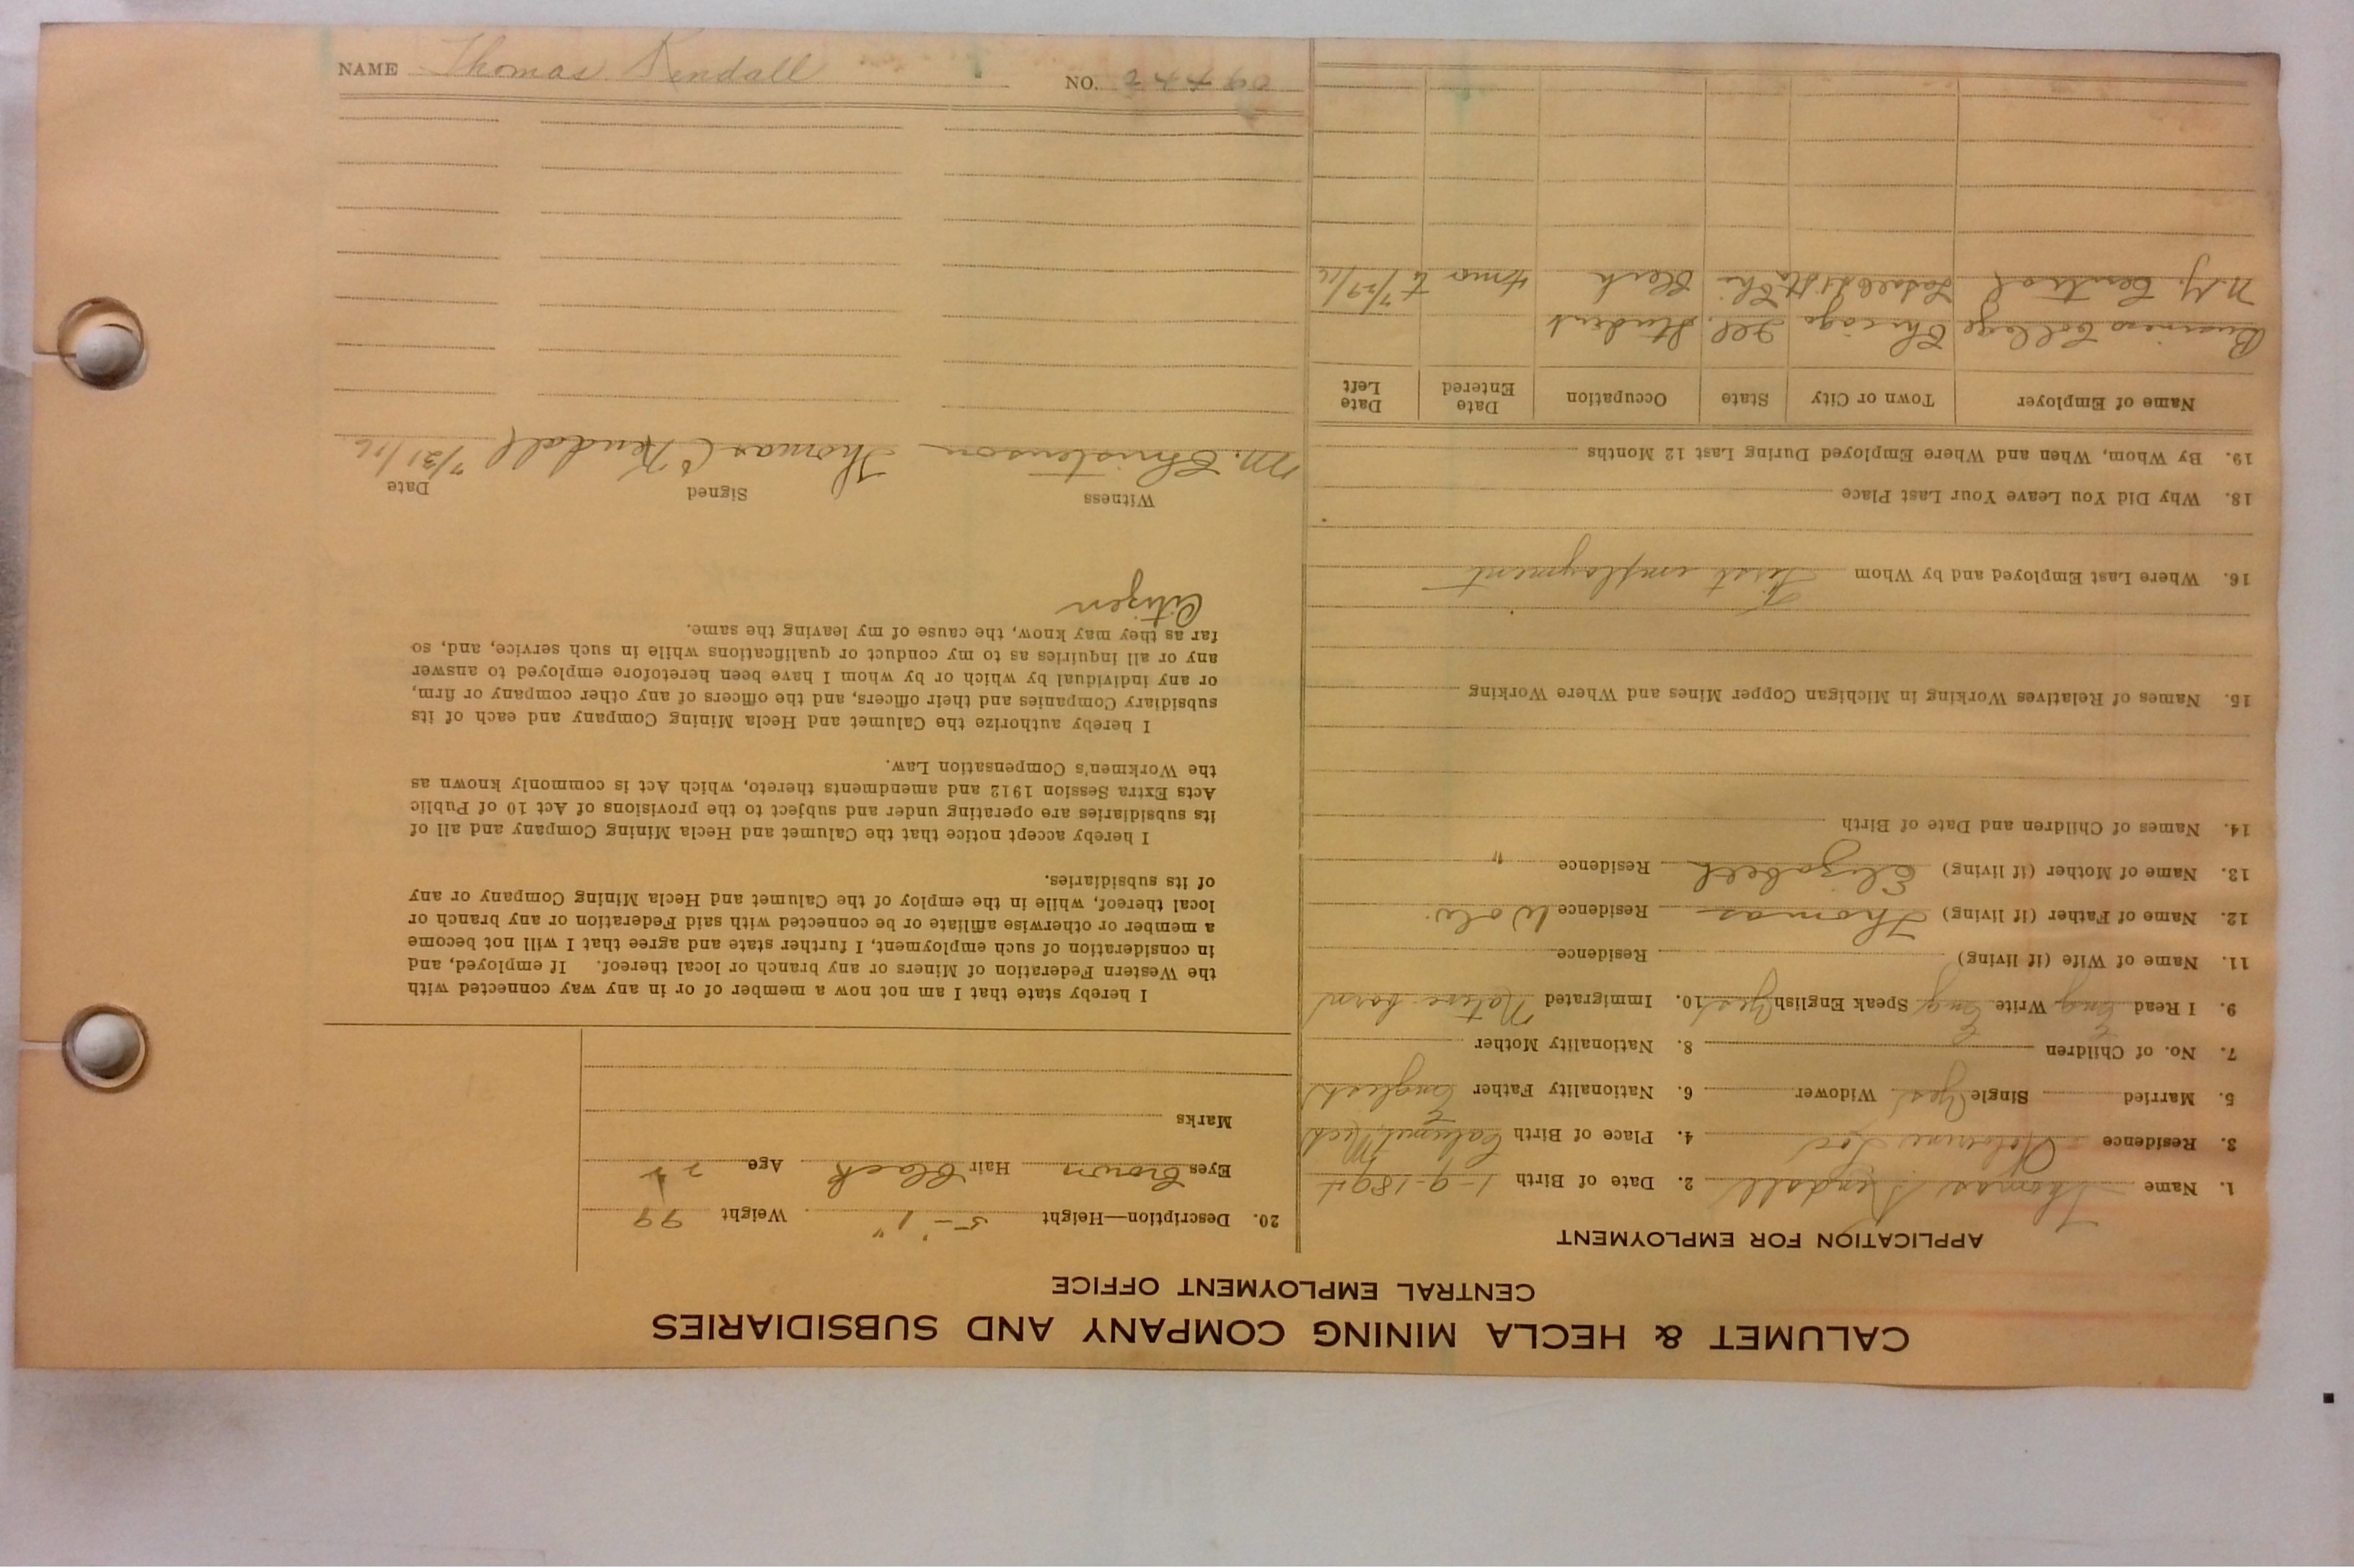 CALUMET & HECLA MINING COMPANY AND SUBSIDIARIES
CENTRAL EMPLOYMENT OFFICE
APPLICATION FOR EMPLOYMENT
1. Name Thomas Kendall 2. Date of Birth 1-9-1894
3. Residence Wolverine Loc 4. Place of Birth Calumet, Mich
5. Married Single Yes Widower 6. Nationality Father English
7. No. of Children 8. Nationality Mother
9. I Read Eng Write Eng Speak English Yes 10. Immigrated Native born
11. Name of Wife (if living) Residence
12. Name of Father (if living) Thomas Residence Wolv.
13. Name of Mother (if living) Elizabeth Residence "
14. Names of Children and Date of Birth
15. Names of Relatives Working in Michigan Copper Mines and Where Working
16. Where Last Employed and by Whom First employment
18. Why Did You Leave Your Last Place
19. By Whom, When and Where Employed During Last 12 Months
Name of Employer Town or City State Occupation Date Entered Date Left
Business College Chicago Ill. Student
N.Y. Central Chi Clerk 4 mo to 7/29/16
20. Description—Height 5'-1" Weight 99
Eyes Brown Hair Black Age 22
Marks
I hereby state that I am not now a member of or in any way connected with
the Western Federation of Miners or any branch or local thereof. If employed, and
in consideration of such employment, I further state and agree that I will not become
a member or otherwise affiliate or be connected with said Federation or any branch or
local thereof, while in the employ of the Calumet and Hecla Mining Company or any
of its subsidiaries.
I hereby accept notice that the Calumet and Hecla Mining Company and all of
its subsidiaries are operating under and subject to the provisions of Act 10 of Public
Acts Extra Session 1912 and amendments thereto, which Act is commonly known as
the Workmen's Compensation Law.
I hereby authorize the Calumet and Hecla Mining Company and each of its
subsidiary Companies and their officers, and the officers of any other company or firm,
or any individual by which or by whom I have been heretofore employed to answer
any or all inquiries as to my conduct or qualifications while in such service, and, so
far as they may know, the cause of my leaving the same.
Citizen
Witness Signed Date
M. Christenson Thomas Kendall 7/31/16
NAME Thomas Kendall NO. 24490